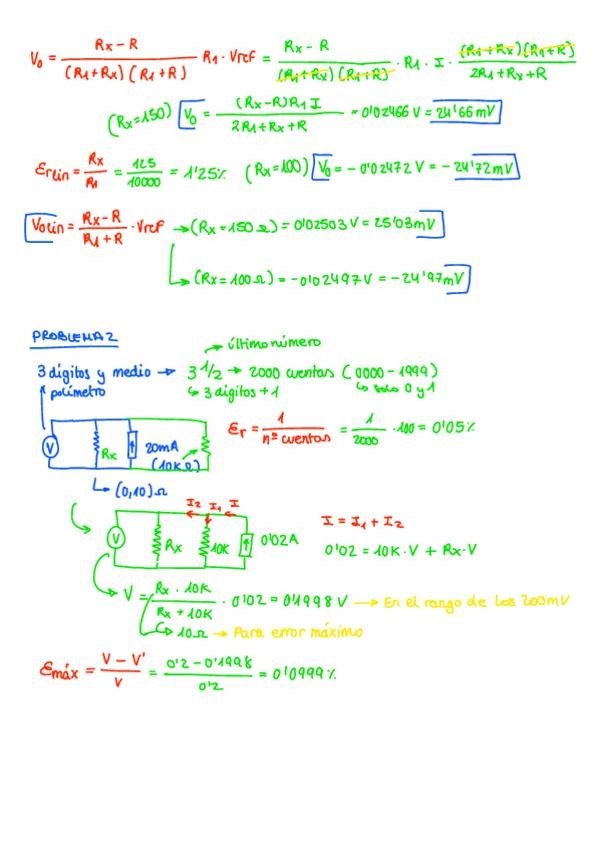 Vo = Rx - R / (R1+Rx)(R1+R) R1 · Vref = Rx - R / (R1+Rx)(R1+R) · R1 · I · (R1+Rx)(R1+R) / 2R1+Rx+R
(Rx=150) Vo = (Rx-R)R1 I / 2R1+Rx+R = 0'02466 V = 24'66 mV
Erlin = Rx / R1 = 125 / 10000 = 1'25% (Rx=100) Vo = - 0'02472 V = - 24'72 mV
Volin = Rx - R / R1 + R · Vref → (Rx = 150 Ω) = 0'02503 V = 25'03 mV
→ (Rx = 100 Ω) = -0'02497 V = -24'97 mV
PROBLEMA 2
→ último número
3 dígitos y medio → 3 1/2 → 2000 cuentas (0000 - 1999)
polímetro ↳ 3 dígitos + 1 ↳ solo 0 y 1
Er = 1 / nº cuentas = 1 / 2000 · 100 = 0'05%
V Rx 20mA (10KΩ)
↳ (0,10) Ω
I2 I1 I
V Rx 10K 0'02A
I = I1 + I2
0'02 = 10K · V + Rx · V
V = Rx · 10K / Rx + 10K · 0'02 = 0'1998 V → En el rango de los 200mV
↳ 10 Ω → Para error máximo
Emáx = V - V' / V = 0'2 - 0'1998 / 0'2 = 0'0999 %